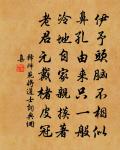 伊予頭腦不相似
鼻孔由來只一般
泠地自家親摸著
老君元戴楮皮冠
釋師範撰道士訶典偶
集